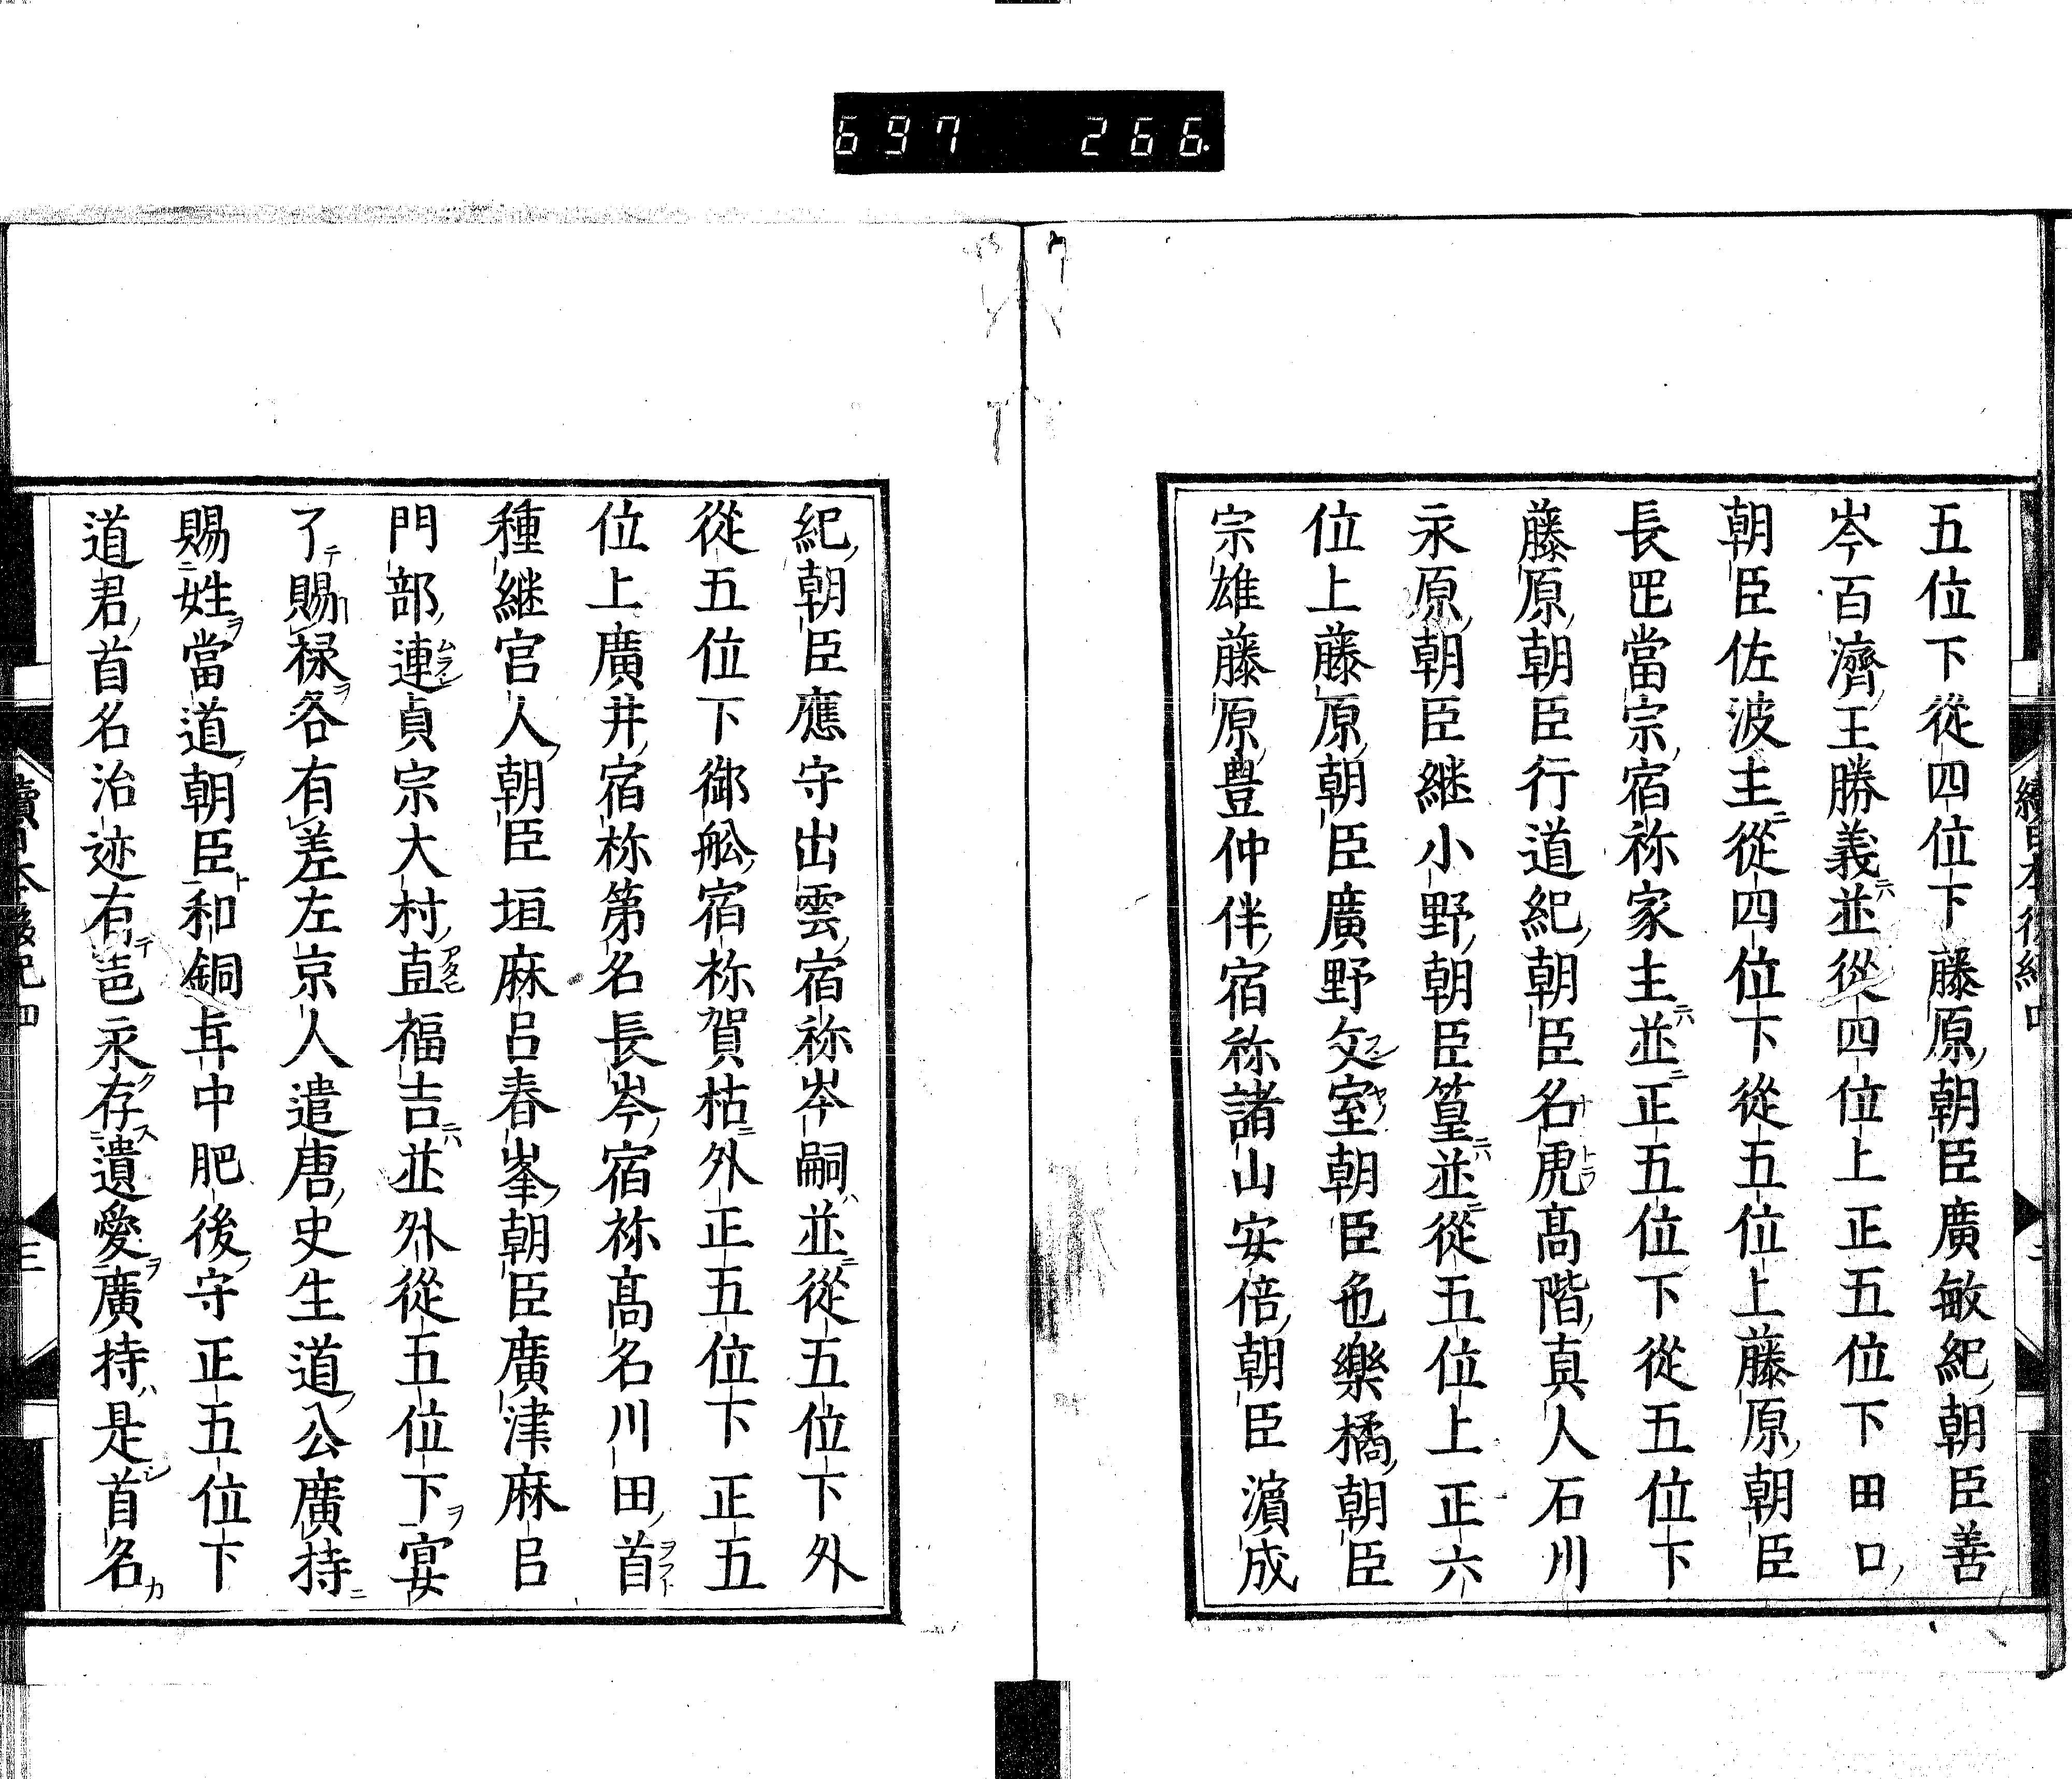 697 266
五位下從四位下藤原朝臣廣敏紀朝臣善
岑百濟王勝義並從四位上正五位下田口
朝臣佐波主從四位下從五位上藤原朝臣
長罡當宗宿祢家主並正五位下從五位下
藤原朝臣行道紀朝臣名虎髙階真人石川
永原朝臣継小野朝臣篁並從五位上正六
位上藤原朝臣廣野文室朝臣也樂橘朝臣
宗雄藤原豊仲伴宿祢諸山安倍朝臣濵成
紀朝臣應守出雲宿祢岑嗣並從五位下外
從五位下御舩宿祢賀枯外正五位下正五
位上廣井宿祢第名長岑宿祢髙名川田首
種継官人朝臣垣麻呂春峯朝臣廣津麻呂
門部連貞宗大村直福吉並外從五位下宴
了賜禄各有差左京人遣唐史生道公廣持
賜姓當道朝臣和銅年中肥後守正五位下
道君首名治迹有邑永存遺愛廣持是首名
續日本後紀四
三